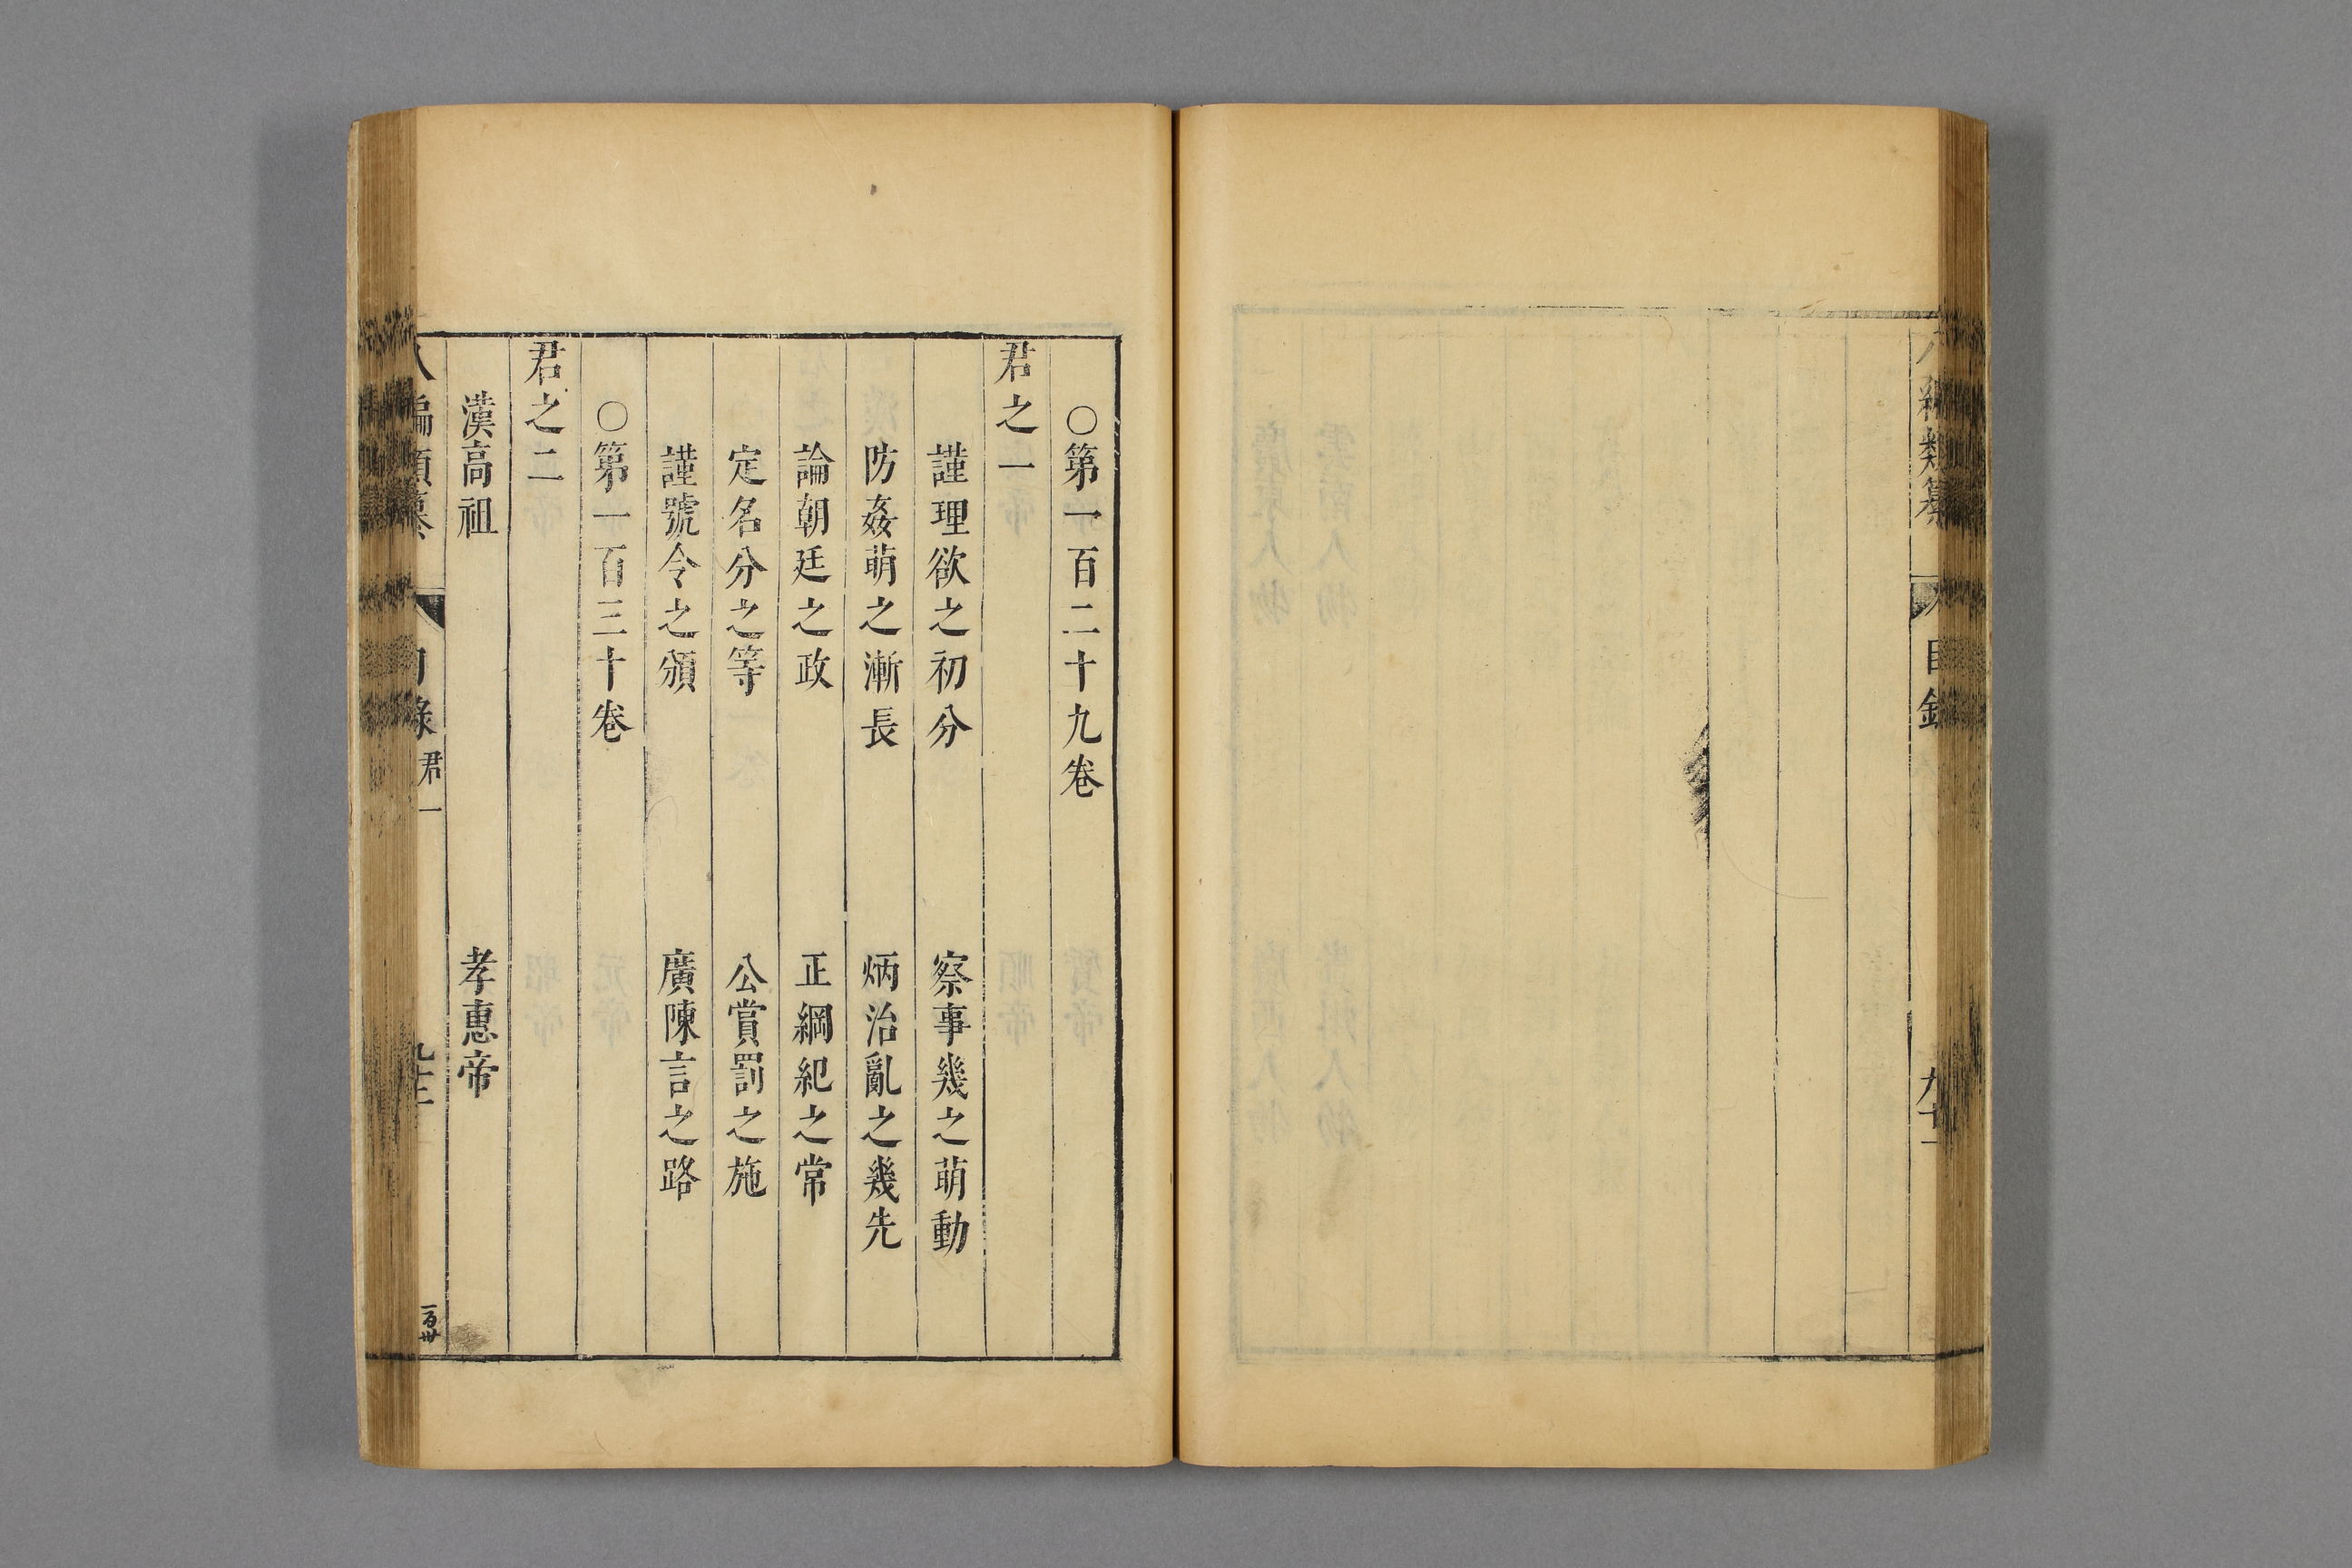 八編類纂 目錄 九十一
○第一百二十九卷
君之一
謹理欲之初分 察事幾之萌動
防姦萌之漸長 炳治亂之幾先
論朝廷之政 正綱紀之常
定名分之等 公賞罰之施
謹號令之頒 廣陳言之路
○第一百三十卷
君之二
漢高祖 孝惠帝
八編類纂 目錄 君一